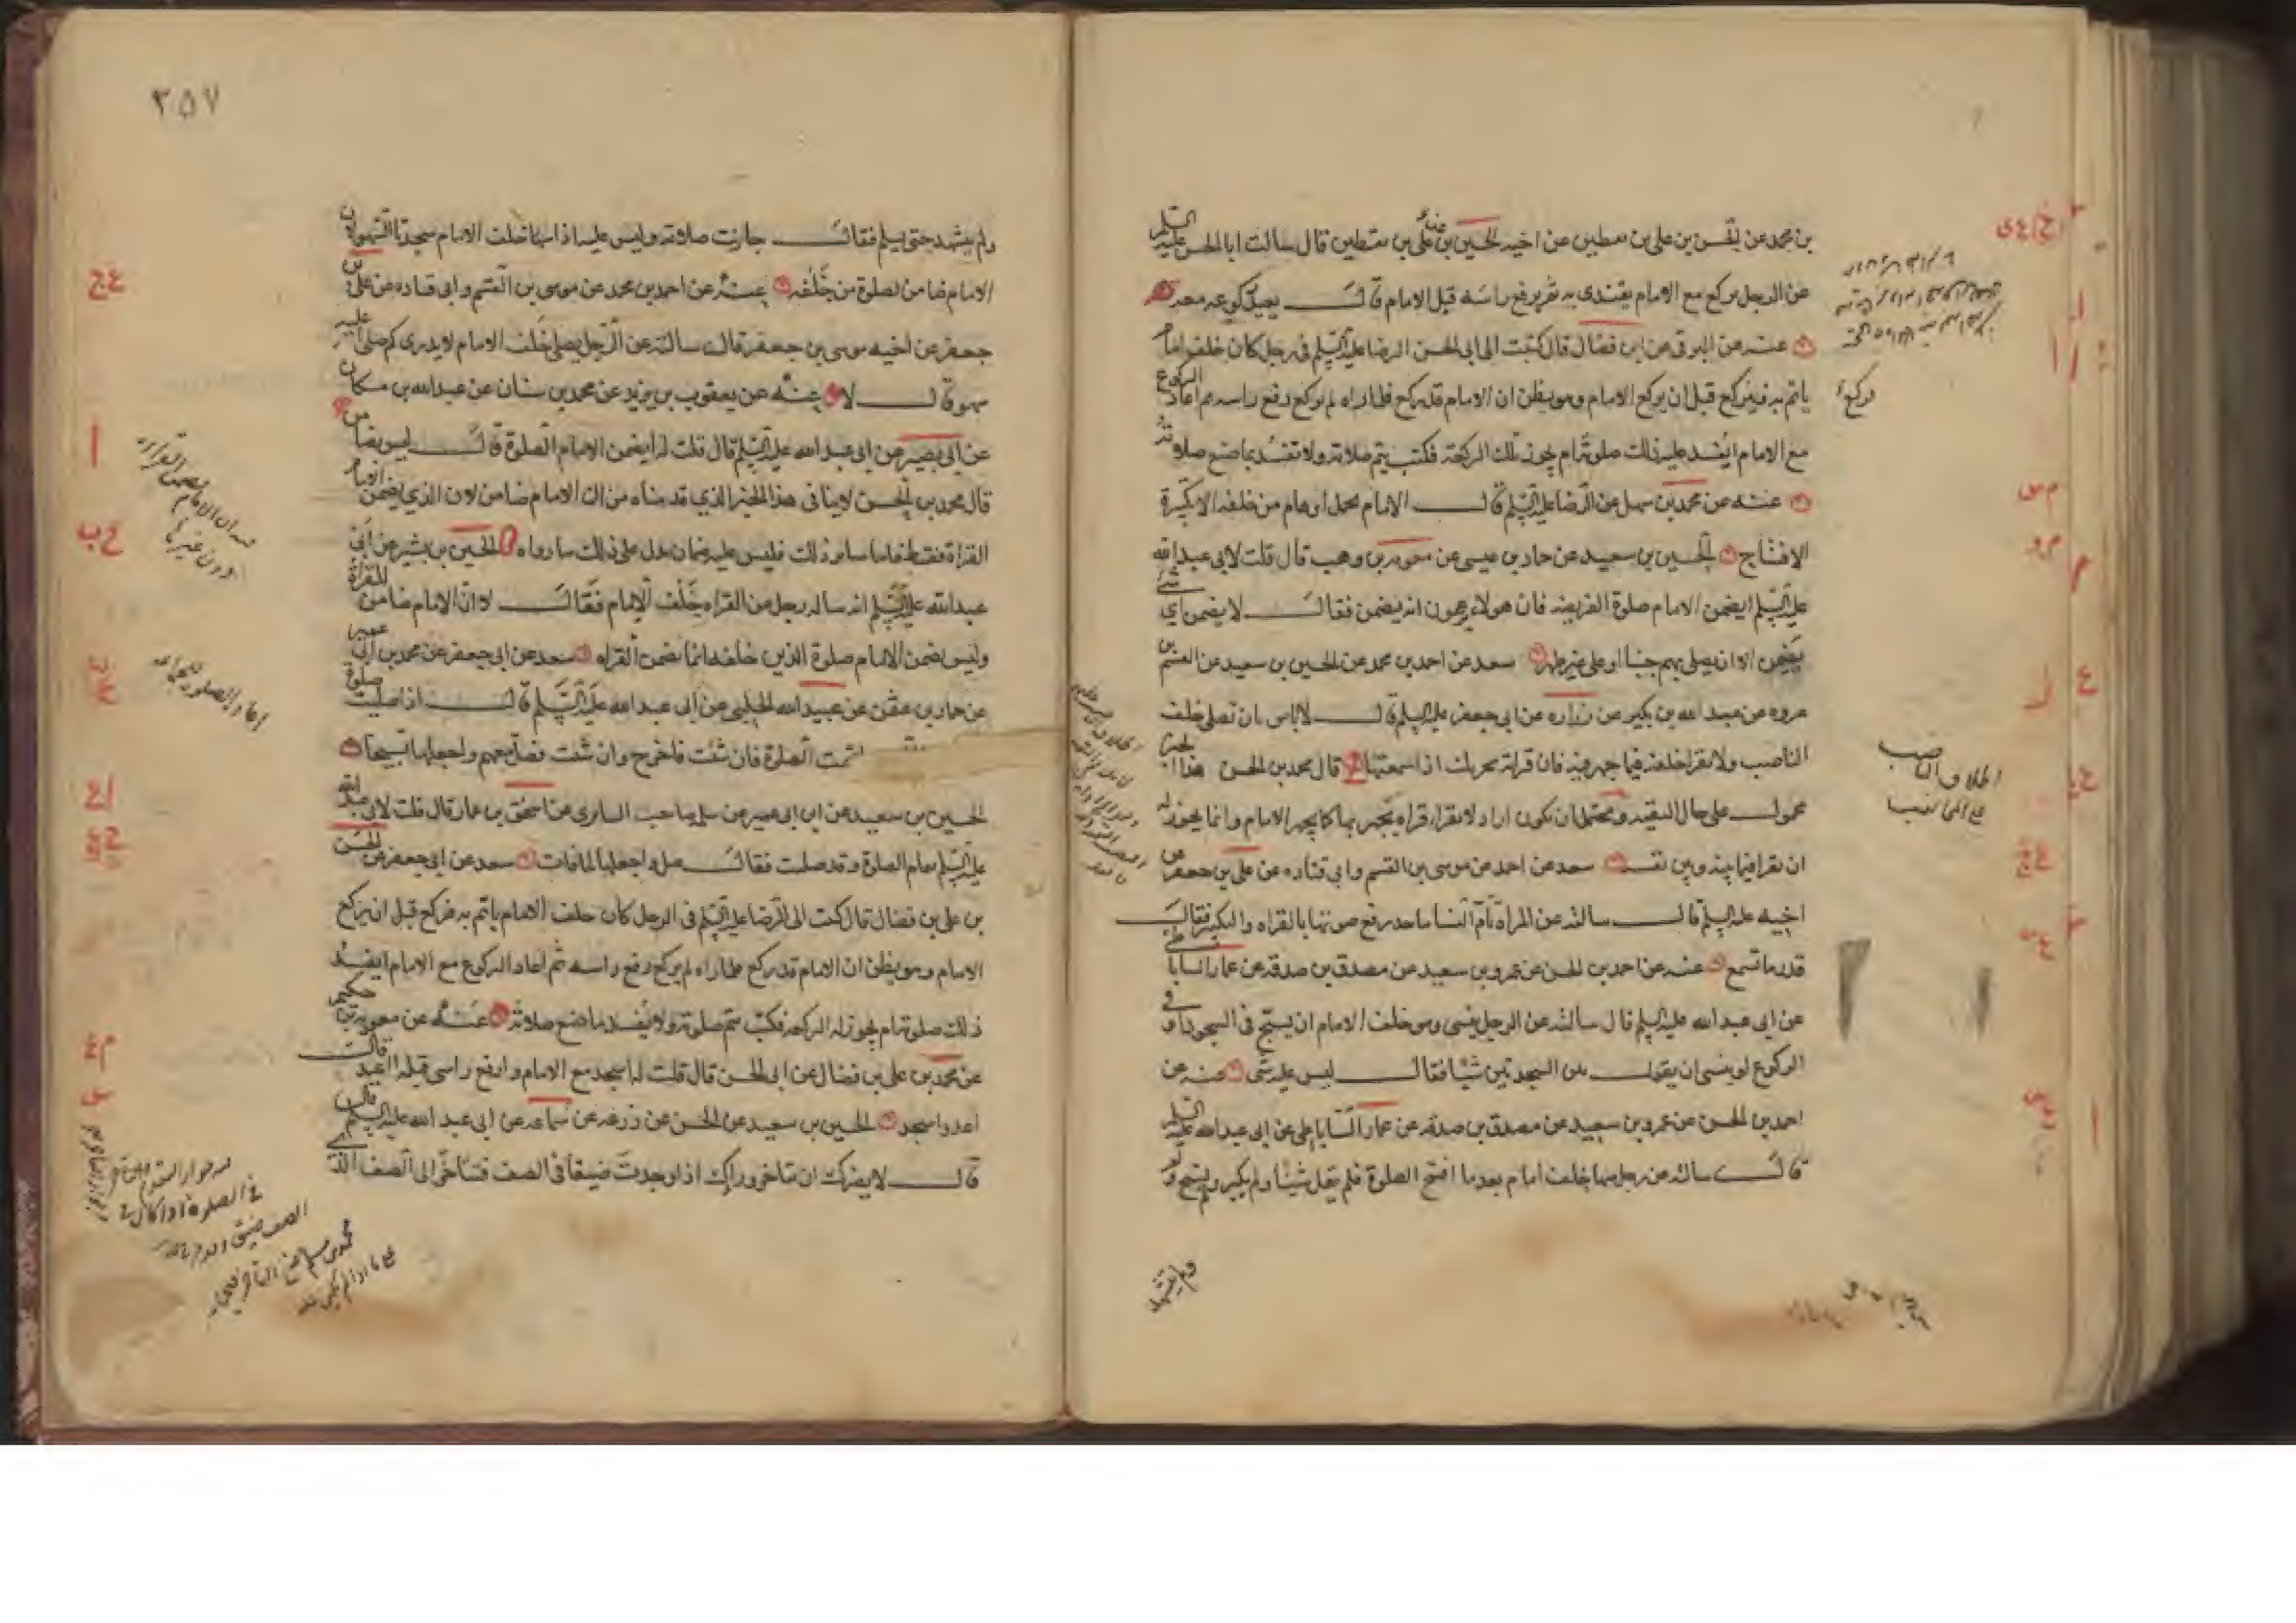 بن محمد عن الحسن بن علي بن يقطين عن اخيه الحسين بن علي بن يقطين قال سالت ابا الحسن عليه السلم
عن الرجل يركع مع الامام يقتدى به ثم يرفع راسه قبل الامام قال يعيد ركوعه معه
عنه عن البرقى عن ابن فضال قال كتبت الى ابى الحسن الرضا عليه السلم فى رجل كان خلف امام
ياتم به فيركع قبل ان يركع الامام وهو يظن ان الامام قد ركع فلما راه لم يركع رفع راسه ثم اعاد الركوع
مع الامام ايفسد عليه ذلك صلوته ام يجوز تلك الركعة فكتب يتم صلاته ولا تفسد بما صنع صلوته
عنه عن محمد بن سهل عن الرضا عليه السلم قال الامام يحمل اوهام من خلفه الا تكبيرة
الافتتاح الحسين بن سعيد عن حماد بن عيسى عن معوية بن وهب قال قلت لابى عبد الله
عليه السلم ايضمن الامام صلوة الفريضه فان هولاء يزعمون انه يضمن فقال لا يضمن اى شئ
يضمن الا ان يصلى بهم جنبا او على غير طهر سعد عن احمد بن محمد عن الحسين بن سعيد عن القسم بن
عروه عن عبد الله بن بكير عن زراره عن ابى جعفر عليه السلم قال لا باس ان تصلى خلف
الناصب ولا تقرا خلفه فيما يجهر فيه فان قراته تجزيك اذا سمعتها قال محمد بن الحسن هذا الخبر
محمول على حال التقيه ويحتمل ان يكون اراد لا تقرا قراه تجهر بها كما يجهر الامام وانما يجوز له
ان تقرا فيما بينه وبين نفسه سعد عن احمد عن موسى بن القسم وابى قتاده عن على بن جعفر عن
اخيه عليه السلم قال سالته عن المراه تام النسا ما حد رفع صوتها بالقراه والتكبير فقال
قدر ما تسمع عنه عن احمد بن الحسن عن عمرو بن سعيد عن مصدق بن صدقه عن عمار الساباطى
عن ابى عبد الله عليه السلم قال سالته عن الرجل ينسى وهو خلف الامام ان يسبح فى السجود او فى
الركوع او ينسى ان يقول بين السجدتين شيئا فقال ليس عليه شئ عنه عن
احمد بن الحسن عن عمرو بن سعيد عن مصدق بن صدقه عن عمار الساباطى عن ابى عبد الله عليه السلم
قال سالته عن رجل سها خلف امام بعد ما افتتح الصلوة فلم يقل شيئا ولم يكبر ولم يسبح و
ولم يتشهد
اطلاق الناصب
على المخالف
٢٥٧
ولم يتشهد حتى يسلم فقال جازت صلاته وليس عليه اذا سها خلف الامام سجدتا السهو لان
الامام ضامن لصلوة من خلفه عنه عن احمد بن محمد عن موسى بن القسم وابى قتاده عن على بن
جعفر عن اخيه موسى بن جعفر قال سالته عن الرجل يصلى خلف الامام لا يدرى كم صلى عليه
سهو قال لا عنه عن يعقوب بن يزيد عن محمد بن سنان عن عبد الله بن مسكان
عن ابى بصير عن ابى عبد الله عليه السلم قال قلت له ايضمن الامام الصلوة قال ليس بضامن
قال محمد بن الحسن لا ينافى هذا الخبر الذي قدمناه من ان الامام ضامن لان الذي يضمن الامام
القراة فقط فاما ساير ذلك فليس عليه ضمان يدل على ذلك ما رواه الحسين بن بشير عن ابى
عبد الله عليه السلم انه ساله رجل عن القراه خلف الامام فقال لا ان الامام ضامن للقراة
وليس يضمن الامام صلوة الذين خلفه انما يضمن القراه سعد عن ابى جعفر عن محمد بن ابى عمير
عن حماد بن عثمن عن عبيد الله الحلبى عن ابى عبد الله عليه السلم قال اذا صليت صلوة
اتمت الصلوة فان شئت فاخرج وان شئت فصل معهم واجعلها تسبيحا
الحسين بن سعيد عن ابن ابى عمير عن سلمه صاحب السابرى عن اسحق بن عمار قال قلت لابى عبد الله
عليه السلم تقام الصلوة وقد صليت فقال صل واجعلها لما فات سعد عن ابى جعفر عن الحسن
بن على بن فضال قال كتبت الى الرضا عليه السلم فى الرجل كان خلف الامام ياتم به فركع قبل ان يركع
الامام وهو يظن ان الامام قد ركع فلما راه لم يركع رفع راسه ثم اعاد الركوع مع الامام ايفسد
ذلك صلوته ام يجوز له الركعه فكتب يتم صلوته ولا يفسد ما صنع صلاته عنه عن معوية بن حكيم
عن محمد بن على بن فضال عن ابى الحسن قال قلت له اسجد مع الامام وارفع راسى قبله اعيد قال
اعد واسجد الحسين بن سعيد عن الحسن عن زرعه عن سماعه عن ابى عبد الله عليه السلم قال
قال لا يضرك ان تتاخر وراك اذا وجدت ضيقا فى الصف فتتاخر الى الصف الذى